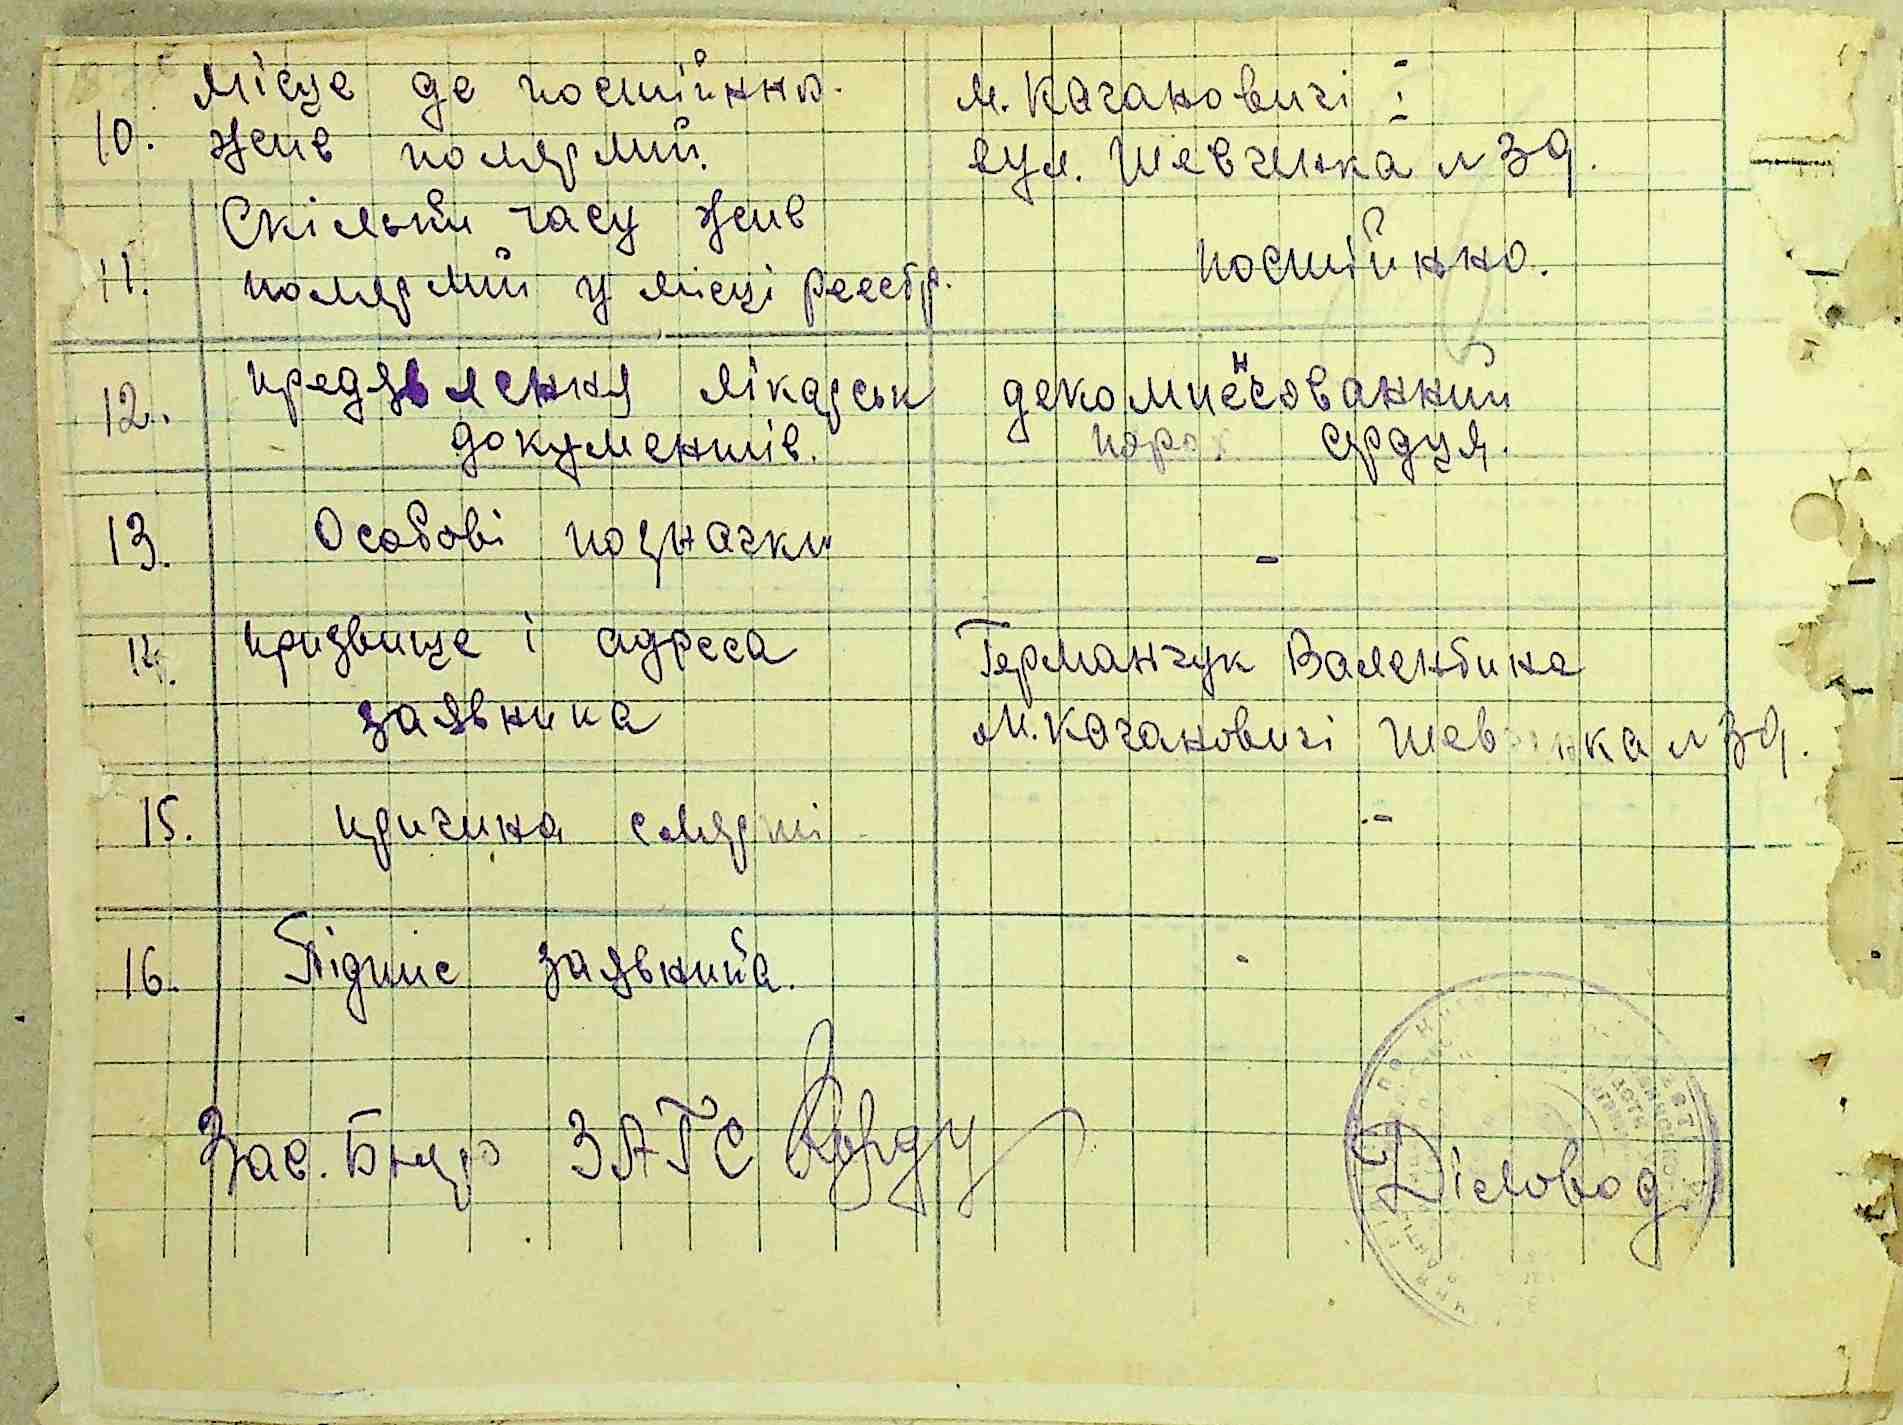 10. Місце де постійно м. Кагановичі
жив померлий. вул. Шевченка № 39.
11. Скільки часу жив постійно.
померлий у місці реєстр.
12. предявлення лікарськ декомпенсованний
документів. порок сердця.
13. Особові позначки -
14. призвище і адреса Германчук Валентина
заявника м. Кагановичі Шевченка № 39.
15. причина смерті -
16. Підпис заявника. -
Зав. Бюро ЗАГС Діловод